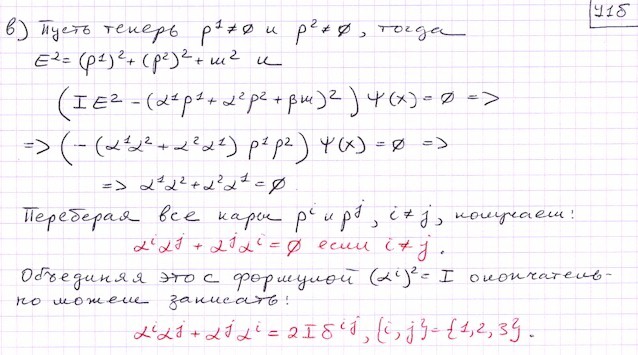 11б
в) Пусть теперь p¹≠0 и p²≠0, тогда
E²=(p¹)²+(p²)²+m² и
(IE²-(α¹p¹+α²p²+βm)²)Ψ(x)=0 =>
=> (-(α¹α²+α²α¹)p¹p²)Ψ(x)=0 =>
=> α¹α²+α²α¹=0.
Переберая все пары pⁱ и pʲ, i≠j, получаем:
αⁱαʲ+αʲαⁱ=0 если i≠j.
Объединяя это с формулой (αⁱ)²=I окончатель-
но можем записать:
αⁱαʲ+αʲαⁱ=2Iδⁱʲ, {i,j}={1,2,3}.